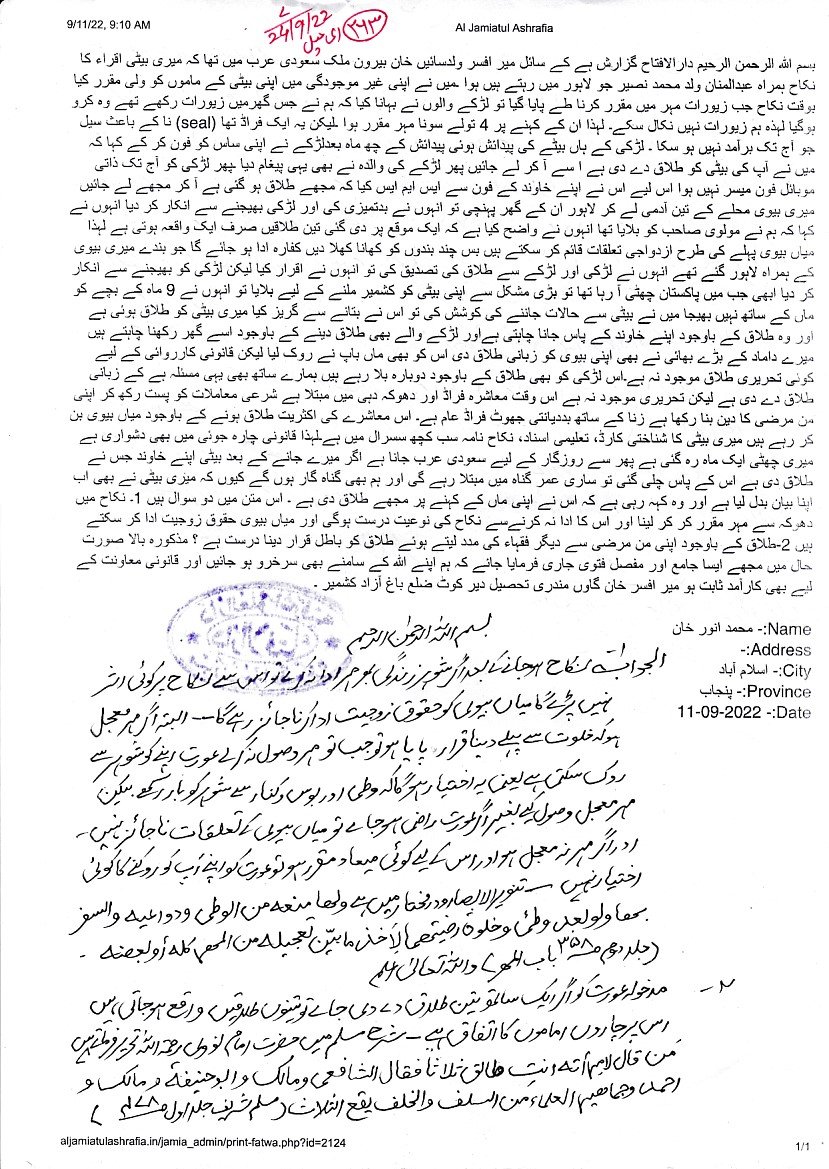 9/11/22, 9:10 AM
Al Jamiatul Ashrafia
24/9/22
ای میل
۳۶۳
بسم اللہ الرحمن الرحیم دارالافتاح گزارش ہے کے سائل میر افسر ولدسائیں خان بیرون ملک سعودی عرب میں تھا کہ میری بیٹی اقراء کا
نکاح ہمراہ عبدالمنان ولد محمد نصیر جو لاہور میں رہتے ہیں ہوا ۔میں نے اپنی غیر موجودگی میں اپنی بیٹی کے ماموں کو ولی مقرر کیا
بوقت نکاح جب زیورات مہر میں مقرر کرنا طے پایا گیا تو لڑکے والوں نے بہانا کیا کہ ہم نے جس گھرمیں زیورات رکھے تھے وہ کرو
نا کے باعث سیل (seal) ہوگیا لہذہ ہم زیورات نہیں نکال سکے۔ لہذا ان کے کہنے پر 4 تولے سونا مہر مقرر ہوا ۔لیکن یہ ایک فراڈ تھا
جو آج تک برآمد نہیں ہو سکا ۔ لڑکی کے ہاں بیٹے کی پیدائش ہوئی پیدائش کے چھ ماہ بعدلڑکے نے اپنی ساس کو فون کر کے کہا کہ
میں نے آپ کی بیٹی کو طلاق دے دی ہے ا سے آ کر لے جائیں پھر لڑکے کی والدہ نے بھی یہی پیغام دیا ۔پھر لڑکی کو آج تک ذاتی
موبائل فون میسر نہیں ہوا اس لیے اس نے اپنے خاوند کے فون سے ایس ایم ایس کیا کہ مجھے طلاق ہو گئی ہے آ کر مجھے لے جائیں
میری بیوی محلے کے تین آدمی لے کر لاہور ان کے گھر پہنچی تو انہوں نے بدتمیزی کی اور لڑکی بھیجنے سے انکار کر دیا انہوں نے
کہا کہ ہم نے مولوی صاحب کو بلایا تھا انہوں نے واضح کیا ہے کہ ایک موقع پر دی گئی تین طلاقیں صرف ایک واقعہ ہوتی ہے لہذا
میاں بیوی پہلے کی طرح ازدواجی تعلقات قائم کر سکتے ہیں بس چند بندوں کو کھانا کھلا دیں کفارہ ادا ہو جائے گا جو بندے میری بیوی
کے ہمراہ لاہور گئے تھے انہوں نے لڑکی اور لڑکے سے طلاق کی تصدیق کی تو انہوں نے اقرار کیا لیکن لڑکی کو بھیجنے سے انکار
کر دیا ابھی جب میں پاکستان چھٹی آ رہا تھا تو بڑی مشکل سے اپنی بیٹی کو کشمیر ملنے کے لیے بلایا تو انہوں نے 9 ماہ کے بچے کو
ماں کے ساتھ نہیں بھیجا میں نے بیٹی سے حالات جاننے کی کوشش کی تو اس نے بتانے سے گریز کیا میری بیٹی کو طلاق ہوئی ہے
اور وہ طلاق کے باوجود اپنے خاوند کے پاس جانا چاہتی ہےاور لڑکے والے بھی طلاق دینے کے باوجود اسے گھر رکھنا چاہتے ہیں
میرے داماد کے بڑے بھائی نے بھی اپنی بیوی کو زبانی طلاق دی اس کو بھی ماں باپ نے روک لیا لیکن قانونی کارروائی کے لیے
کوئی تحریری طلاق موجود نہ ہے۔اس لڑکی کو بھی طلاق کے باوجود دوبارہ بلا رہے ہیں ہمارے ساتھ بھی یہی مسئلہ ہے کے زبانی
طلاق دے دی ہے لیکن تحریری موجود نہ ہے اس وقت معاشرہ فراڈ اور دھوکہ دہی میں مبتلا ہے شرعی معاملات کو پست رکھ کر اپنی
من مرضی کا دین بنا رکھا ہے زنا کے ساتھ بددیانتی جھوٹ فراڈ عام ہے۔ اس معاشرے کی اکثریت طلاق ہونے کے باوجود میاں بیوی بن
کر رہے ہیں میری بیٹی کا شناختی کارڈ، تعلیمی اسناد، نکاح نامہ سب کچھ سسرال میں ہے۔لہذا قانونی چارہ جوئی میں بھی دشواری ہے
میری چھٹی ایک ماہ رہ گئی ہے پھر سے روزگار کے لیے سعودی عرب جانا ہے اگر میرے جانے کے بعد بیٹی اپنے خاوند جس نے
طلاق دی ہے اس کے پاس چلی گئی تو ساری عمر گناہ میں مبتلا رہے گی اور ہم بھی گناہ گار ہوں گے کیوں کہ میری بیٹی نے بھی اب
اپنا بیان بدل لیا ہے اور وہ کہہ رہی ہے کہ اس نے اپنی ماں کے کہنے پر مجھے طلاق دی ہے ۔ اس متن میں دو سوال ہیں 1۔ نکاح میں
دھوکہ سے مہر مقرر کر کر لینا اور اس کا ادا نہ کرنےسے نکاح کی نوعیت درست ہوگی اور میاں بیوی حقوق زوجیت ادا کر سکتے
ہیں 2-طلاق کے باوجود اپنی من مرضی سے دیگر فقہاء کی مدد لیتے ہوئے طلاق کو باطل قرار دینا درست ہے ؟ مذکورہ بالا صورت
حال میں مجھے ایسا جامع اور مفصل فتوی جاری فرمایا جائے کہ ہم اپنے اللہ کے سامنے بھی سرخرو ہو جائیں اور قانونی معاونت کے
لیے بھی کارآمد ثابت ہو میر افسر خان گاوں مندری تحصیل دیر کوٹ ضلع باغ آزاد کشمیر ۔
Name:- محمد انور خان
Address:-
City:- اسلام آباد
Province:- پنجاب
Date:- 11-09-2022
بسم اللہ الرحمن الرحیم
الجواب نکاح ہوجانے کے بعد اگر شوہر زندگی بھر مہر ادا نہ کرے تو اس سے نکاح پر کوئی اثر
نہیں پڑے گا میاں بیوی کو حقوق زوجیت ادا کرنا جائز رہے گا — البتہ اگر مہر معجل
ہو کہ خلوت سے پہلے دینا قرار پایا ہو تو جب تو مہر وصول نہ کرلے عورت اپنے کو شوہر سے
روک سکتی ہے یعنی یہ اختیار ہوگا کہ وطی اور بوس وکنار سے شوہر کو باز رکھے لیکن
مہر معجل وصول کیے بغیر اگر عورت راضی ہوجائے تو میاں بیوی کے تعلقات ناجائز نہیں ۔
اور اگر مہر نہ معجل ہو اور اس کے لیے کوئی میعاد مقرر ہو تو عورت کو اپنے آپ کو روکنے کا کوئی
اختیار نہیں — تنویر الابصار و درمختار میں ہے ولها منعه من الوطی ودواعیه والسفر
بها ولو بعد وطئ وخلوة رضیتهما لأخذ ما بین تعجیله من المهر کله أو بعضه ۔
(جلد دوم ص۳۵۸ باب المہر) واللہ تعالیٰ اعلم
۲ — مدخولہ عورت کو اگر ایک ساتھ تین طلاق دے دی جائے تو تینوں طلاقیں واقع ہوجاتی ہیں
اس پر چاروں اماموں کا اتفاق ہے — شرح مسلم میں حضرت امام نووی رحمۃ اللہ تحریر فرماتے ہیں
من قال لامرأته انت طالق ثلاثا فقال الشافعی ومالک وابوحنیفة ومالک و
احمد وجماهیر العلماء من السلف والخلف یقع الثلاث (مسلم شریف جلد اول ص۴۷۸)
aljamiatulashrafia.in/jamia_admin/print-fatwa.php?id=2124
1/1